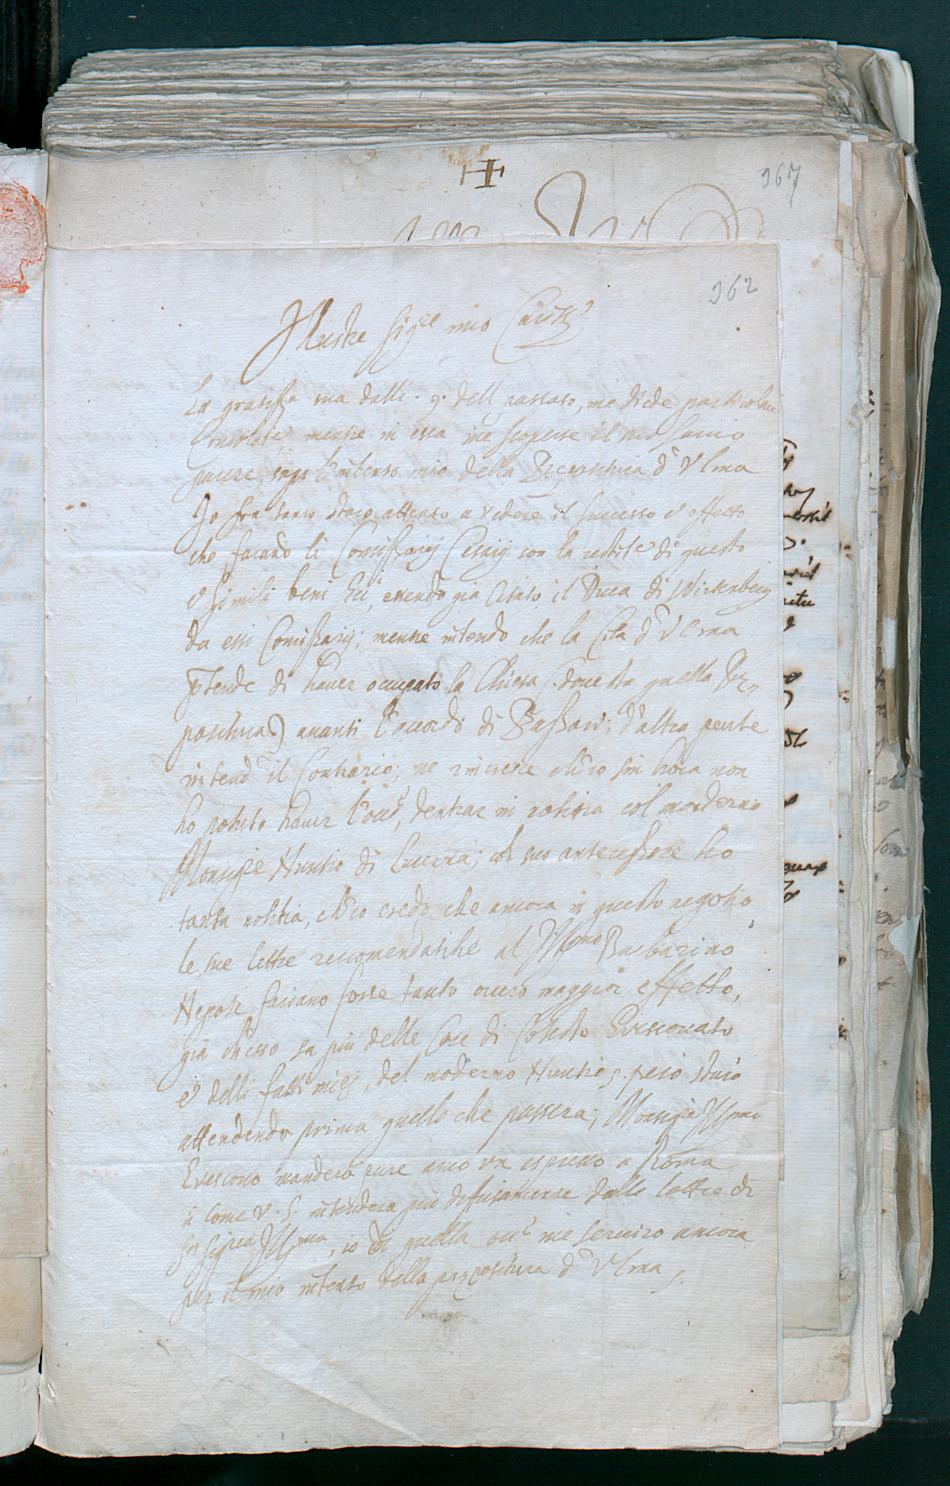 367
362
Illustre Sig.re mio
La gratiss.a sua dalli .9. dell passato, me diede particolare
mentre in essa me scoperse il suo savio
parere, sopra l'intento mio della Prepositura d'Vlma
Io fra tanto starò attento a vedere il successo et effetto
che farano li Comissarij Cesarij con la di questo
et simili beni essendo già citato il Duca di Wirtenberg
da essi Comissarij; mentre intendo che la Cità d'Vlma
ptende di haver occupato la Chiesa (dove sta quella Pre
positura) avanti l'acordo di Passavi; d'altra parte
intendo il Contrario; ne rincresce ch'io sin hora non
ho potuto haver l'occ.e, d'entrar in notitia col moderno
Monsig.re Nuntio di Lucerna; col suo antecessore ho
tanta notitia, ch'io credo che ancora in questo negotio
le sue lettre recomendatitie al Ill.mo Barbarino
Nepote, faciano forse tanto overo maggior effetto,
già ch'esso sa più delle Cose di Cotesto Evescovato
et delli fatti miej, del moderno Nuntio; però starò
attendendo prima quello che passera; Monsig.r Ill.mo
Evescovo manderà pure anco un espresso a Roma
si come V. S. intenderà più diffusamente dalle lettre di
Sua Sig.ria Ill.ma, io di quella me servirò ancora
per il mio intento della prepositura d'Vlma